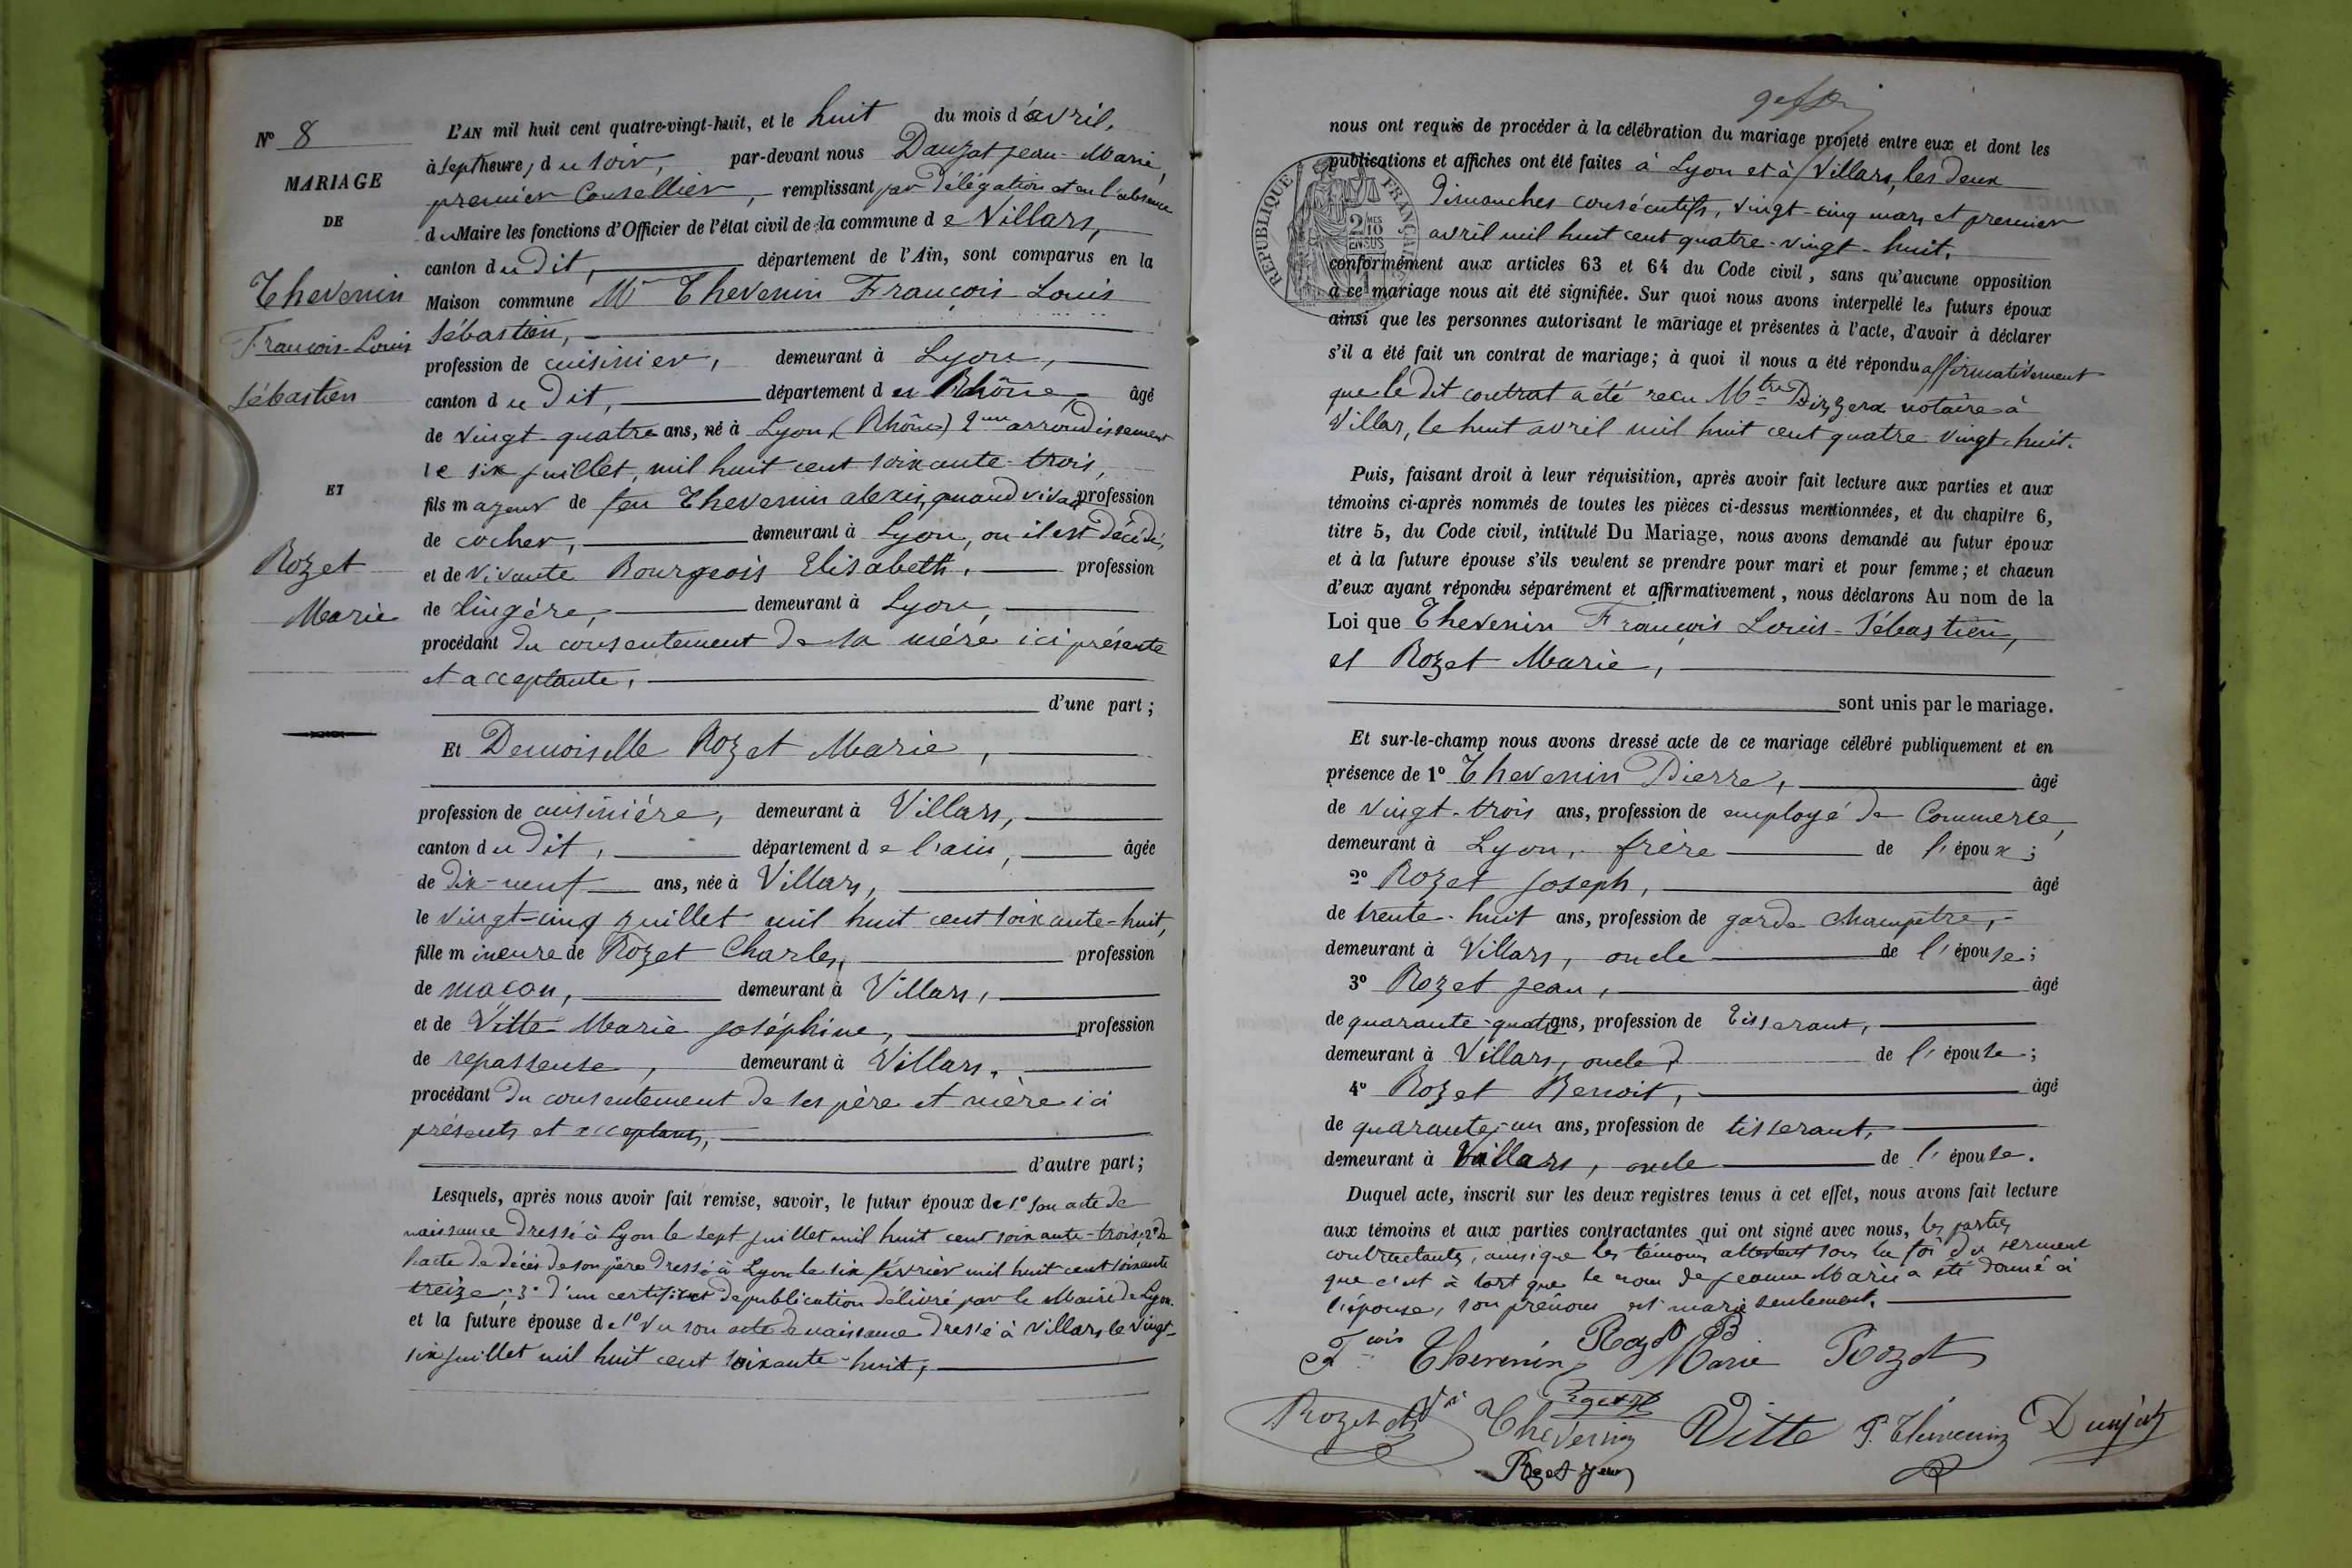 N° 8
MARIAGE
DE
Thevenin
François-Louis
Sébastien
ET
Rozet
Marie
L'AN mil huit cent quatre-vingt-huit, et le huit du mois d'avril,
à sept heures du soir, par-devant nous Dauzat Jean-Marie,
premier Conseiller, remplissant par délégation et en l'absence
du Maire les fonctions d'Officier de l'état civil de la commune de Villars,
canton du dit, département de l'Ain, sont comparus en la
Maison commune Mr Thevenin François Louis
Sébastien,
profession de cuisinier, demeurant à Lyon,
canton du dit, département du Rhône, âgé
de vingt-quatre ans, né à Lyon (Rhône) 2me arrondissement
le six juillet, mil huit cent soixante-trois,
fils majeur de feu Thevenin alexis, quand vivait profession
de cocher, demeurant à Lyon, ou il est décédé,
et de vivante Bourgeois Elisabeth, profession
de lingère, demeurant à Lyon,
procédant du consentement de sa mére ici présente
et acceptante,
d'une part ;
Et Demoiselle Rozet Marie,
profession de cuisiniére, demeurant à Villars,
canton du dit, département de l'ain, âgée
de dix-neuf ans, née à Villars,
le vingt-cinq juillet mil huit cent soixante-huit,
fille mineure de Rozet Charles, profession
de maçon, demeurant à Villars,
et de Vitte Marie Joséphine, profession
de repasseuse, demeurant à Villars,
procédant du consentement de ses père et mère ici
présents et acceptants,
d'autre part ;
Lesquels, après nous avoir fait remise, savoir, le futur époux de 1° son acte de
naissance dressé à Lyon le sept juillet mil huit cent soixante-trois, 2° de
l'acte de décès de son père dressé à Lyon le six février mil huit cent soixante
treize ; 3° d'un certificat de publication délivré par le Maire de Lyon.
et la future épouse de 1° Vu son acte de naissance dressé à Villars le vingt-
six juillet mil huit cent soixante-huit,
nous ont requis de procéder à la célébration du mariage projeté entre eux et dont les
publications et affiches ont été faites à Lyon et à Villars, les deux
Dimanches consécutifs, vingt-cinq mars et premier
avril mil huit cent quatre-vingt-huit.
RÉPUBLIQUE FRANÇAISE
conformément aux articles 63 et 64 du Code civil, sans qu'aucune opposition
à ce mariage nous ait été signifiée. Sur quoi nous avons interpellé les futurs époux
ainsi que les personnes autorisant le mariage et présentes à l'acte, d'avoir à déclarer
s'il a été fait un contrat de mariage ; à quoi il nous a été répondu affirmativement
que le dit contrat a été reçu Mtre notaire à
Villars, le huit avril mil huit cent quatre vingt-huit.
Puis, faisant droit à leur réquisition, après avoir fait lecture aux parties et aux
témoins ci-après nommés de toutes les pièces ci-dessus mentionnées, et du chapitre 6,
titre 5, du Code civil, intitulé Du Mariage, nous avons demandé au futur époux
et à la future épouse s'ils veulent se prendre pour mari et pour femme ; et chacun
d'eux ayant répondu séparément et affirmativement, nous déclarons Au nom de la
Loi que Thevenin François Louis-Sébastien,
et Rozet Marie,
sont unis par le mariage.
Et sur-le-champ nous avons dressé acte de ce mariage célébré publiquement et en
présence de 1° Thevenin Pierre, âgé
de vingt-trois ans, profession de employé de Commerce,
demeurant à Lyon, frère de l'époux ;
2° Rozet Joseph, âgé
de trente-huit ans, profession de garde champêtre,
demeurant à Villars, oncle de l'épouse ;
3° Rozet Jean, âgé
de quarante-quatre ans, profession de tisserant,
demeurant à Villars, oncle de l'épouse ;
4° Rozet Benoit, âgé
de quarante-un ans, profession de tisserant,
demeurant à Villars, oncle de l'épouse.
Duquel acte, inscrit sur les deux registres tenus à cet effet, nous avons fait lecture
aux témoins et aux parties contractantes qui ont signé avec nous, les parties
contractantes, ainsi que les témoins attestent sous la foi du serment
que c'est à tort que le nom de Jeanne Marie a été donné à
l'épouse, son prénom est marie seulement.
Fcois Thevenin Rozet B Marie Rozet
Rozet Thevenin Vitte P. Thevenin
Rozet Jean